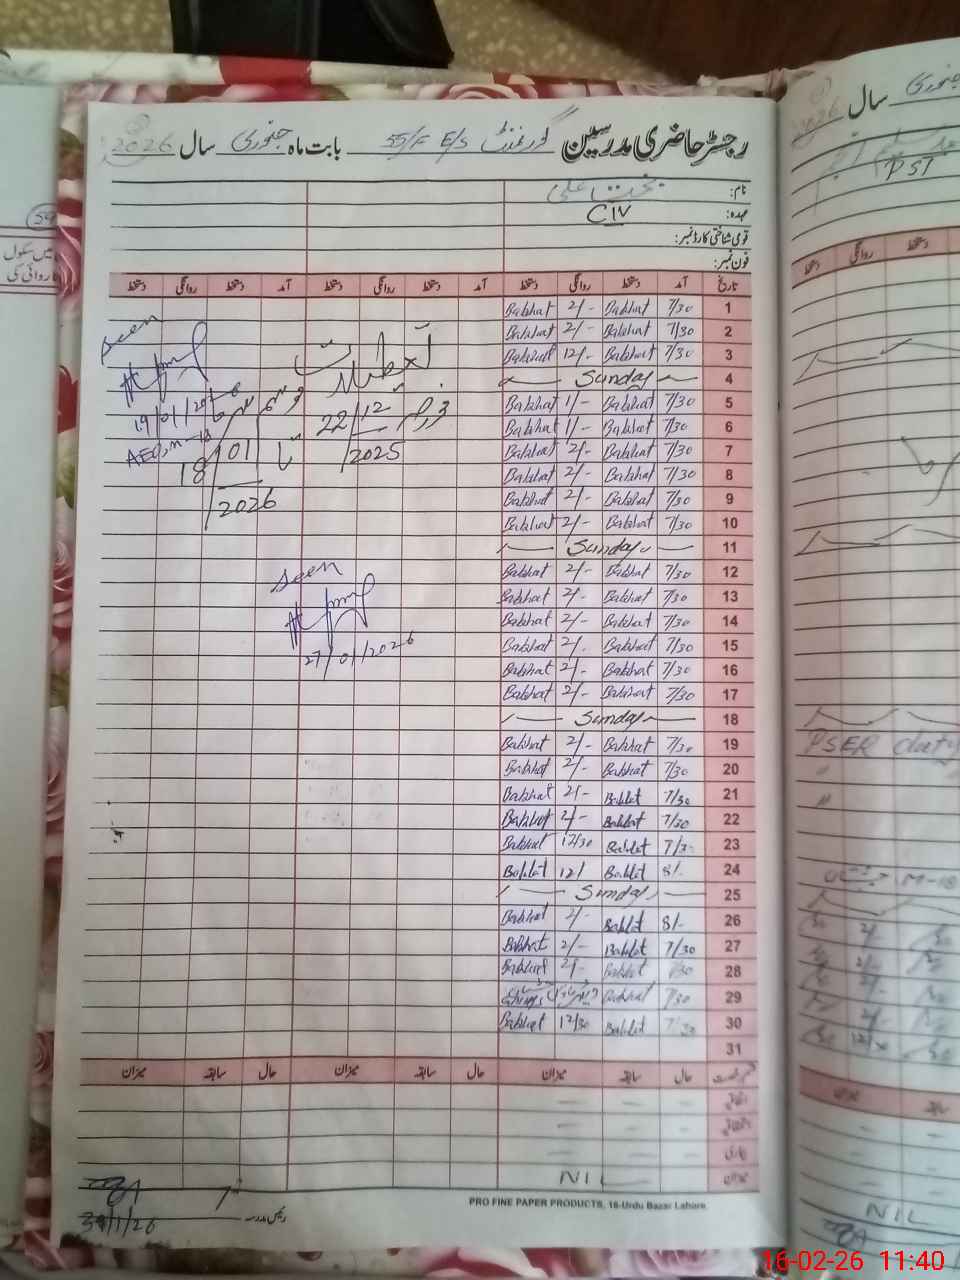 رجسٹر حاضری مدرسین گورنمنٹ 55/F E/S بابت ماہ جنوری سال 2026
نام: بخت علی
عہدہ: CIV
قومی شناختی کارڈ نمبر:
فون نمبر:
تاریخ آمد دستخط روانگی دستخط آمد دستخط روانگی دستخط آمد دستخط روانگی دستخط
1 7/30 Bakhat 2/- Bakhat
2 7/30 Bakhat 2/- Bakhat
3 7/30 Bakhat 12/- Bakhat
4 Sunday
5 7/30 Bakhat 1/- Bakhat
6 7/30 Bakhat 1/- Bakhat
7 7/30 Bakhat 2/- Bakhat
8 7/30 Bakhat 2/- Bakhat
9 7/30 Bakhat 2/- Bakhat
10 7/30 Bakhat 2/- Bakhat
11 Sunday
12 7/30 Bakhat 2/- Bakhat
13 7/30 Bakhat 2/- Bakhat
14 7/30 Bakhat 2/- Bakhat
15 7/30 Bakhat 2/- Bakhat
16 7/30 Bakhat 2/- Bakhat
17 7/30 Bakhat 2/- Bakhat
18 Sunday
19 7/30 Bakhat 2/- Bakhat
20 7/30 Bakhat 2/- Bakhat
21 7/30 Bakhat 2/- Bakhat
22 7/30 Bakhat 2/- Bakhat
23 7/3- Bakhat 12/30 Bakhat
24 8/- Bakhat 12/ Bakhat
25 Sunday
26 8/- Bakhat 2/- Bakhat
27 7/30 Bakhat 2/- Bakhat
28 7/30 Bakhat 2/- Bakhat
29 7/30 Bakhat
30 7/30 Bakhat 12/30 Bakhat
31
تعطیلات
موسم سرما
22/12/2025
تا
18/01/2026
seen
19/01/2026
AEO, M-18
seen
27/01/2026
حال سابقہ میزان حال سابقہ میزان حال سابقہ میزان
اتفاقی
بیماری
میزان NIL
رئیس مدرسہ
31/1/26
PRO FINE PAPER PRODUCTS, 16-Urdu Bazar Lahore.
جنوری سال 2026
PST
دستخط روانگی دستخط
PSER data
M-18
2/-
2/-
2/-
2/-
12/30
سابقہ میزان
NIL
59
میں سکول
کاروائی کی
16-02-26 11:40